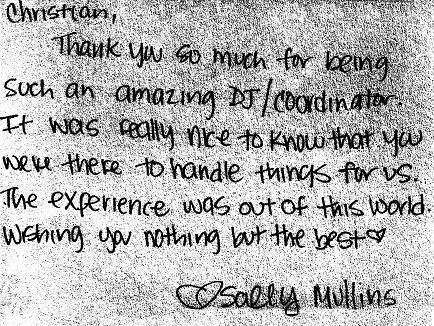 Christian,
Thank you so much for being
such an amazing DJ/Coordinator.
It was really nice to know that you
were there to handle things for us.
The experience was out of this world.
Wishing you nothing but the best♡
♡Sally Mullins